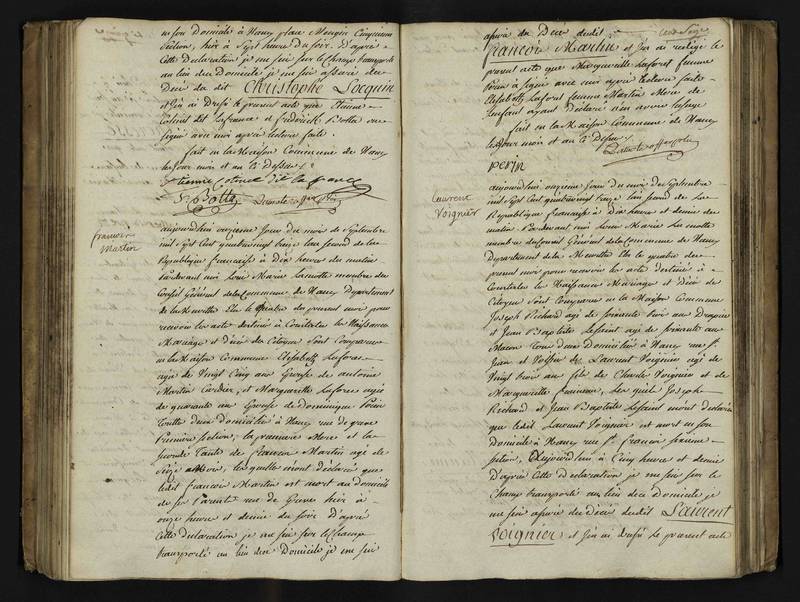 en son Domicile à Nancy place Mengin Cinquieme
section, hier à Sept heure du soir. D'après
Cette declaration je me suis sur le Champ transporté
au lieu du Domicile je me suis assuré du
Décé du dit Christophe Jacquin
et j'ai Dressé le present acte que Etienne
dit Lafrance et frederick Botta ont
signé avec moi après lecture faite.
fait en la Maison Commune de Nancy
les Jour mois et an ci Dessus
Etienne dit la france
Botta
françois
Martin
aujourdhui onzieme Jour du mois de Septembre
mil Sept Cent quatrevingt treize l'an second de la
Republique françoise à Dix heures du matin
pardevant moi Louis Marie Lamotte membre du
Conseil Général de la Commune de Nancy Departement
de la Meurthe Elu le quatre du present mois pour
recevoir les actes destinés à Constater les Naissances
Mariage et Décé des Citoyens sont Comparues
en la Maison Commune Elisabeth Laforet
agée de Vingt Cinq ans Epouse de antoine
Martin Cordier, et Marguerite Laforet agée
de quarante ans Epouse de Dominique
toutte deux Domiciliés à Nancy rue de grève
Premiere section, la premiere Mere et la
seconde Tante de françois Martin agé de
Seize Mois, lesquelles m'ont déclaré que
ledit françois Martin est mort au domicile
de ses Parents rue de Greve hier à
onze heure et demie du soir D'après
Cette declaration je me suis sur le Champ
transporté au lieu du Domicile je me suis
assuré du Décé dudit
françois Martin et j'en ai redigé le
present acte que Marguerite Laforet femme
à signé avec moi après lecture faite
Elisabeth Laforet femme Martin Mere de
l'enfant ayant déclaré n'en avoir l'usage
fait en la Maison Commune de Nancy
les Jour mois et an ci Dessus
perin
Laurent
Voignier
aujourdhui onzieme Jour du mois de Septembre
mil Sept Cent quatrevingt treize l'an second de la
Republique françoise à Dix heure et demie du
matin Pardevant moi Louis Marie Lamotte
membre du Conseil Général de la Commune de Nancy
Departement de la Meurthe Elu le quatre du
present mois pour recevoir les actes destinés à
Constater les Naissances Mariage et Décé des
Citoyens sont Comparus en la Maison Commune
Joseph Richard agé de soixante trois ans Drapier
et Jean Baptiste agé de soixante ans
Macon tous deux Domiciliés à Nancy rue St
Jean et de Laurent Voignier agé de
Vingt trois ans fils de Charles Voignier et de
Marguerite lesquels Joseph
Richard et Jean Baptiste m'ont déclaré
que ledit Laurent Voignier est mort en son
Domicile à Nancy rue St françois
section, Aujourdhui à Cinq heure et demie
D'après Cette Declaration je me suis sur le
Champ transporté au lieu du Domicile je
me suis assuré du Décé dudit Laurent
Voignier et j'en ai dressé le present acte